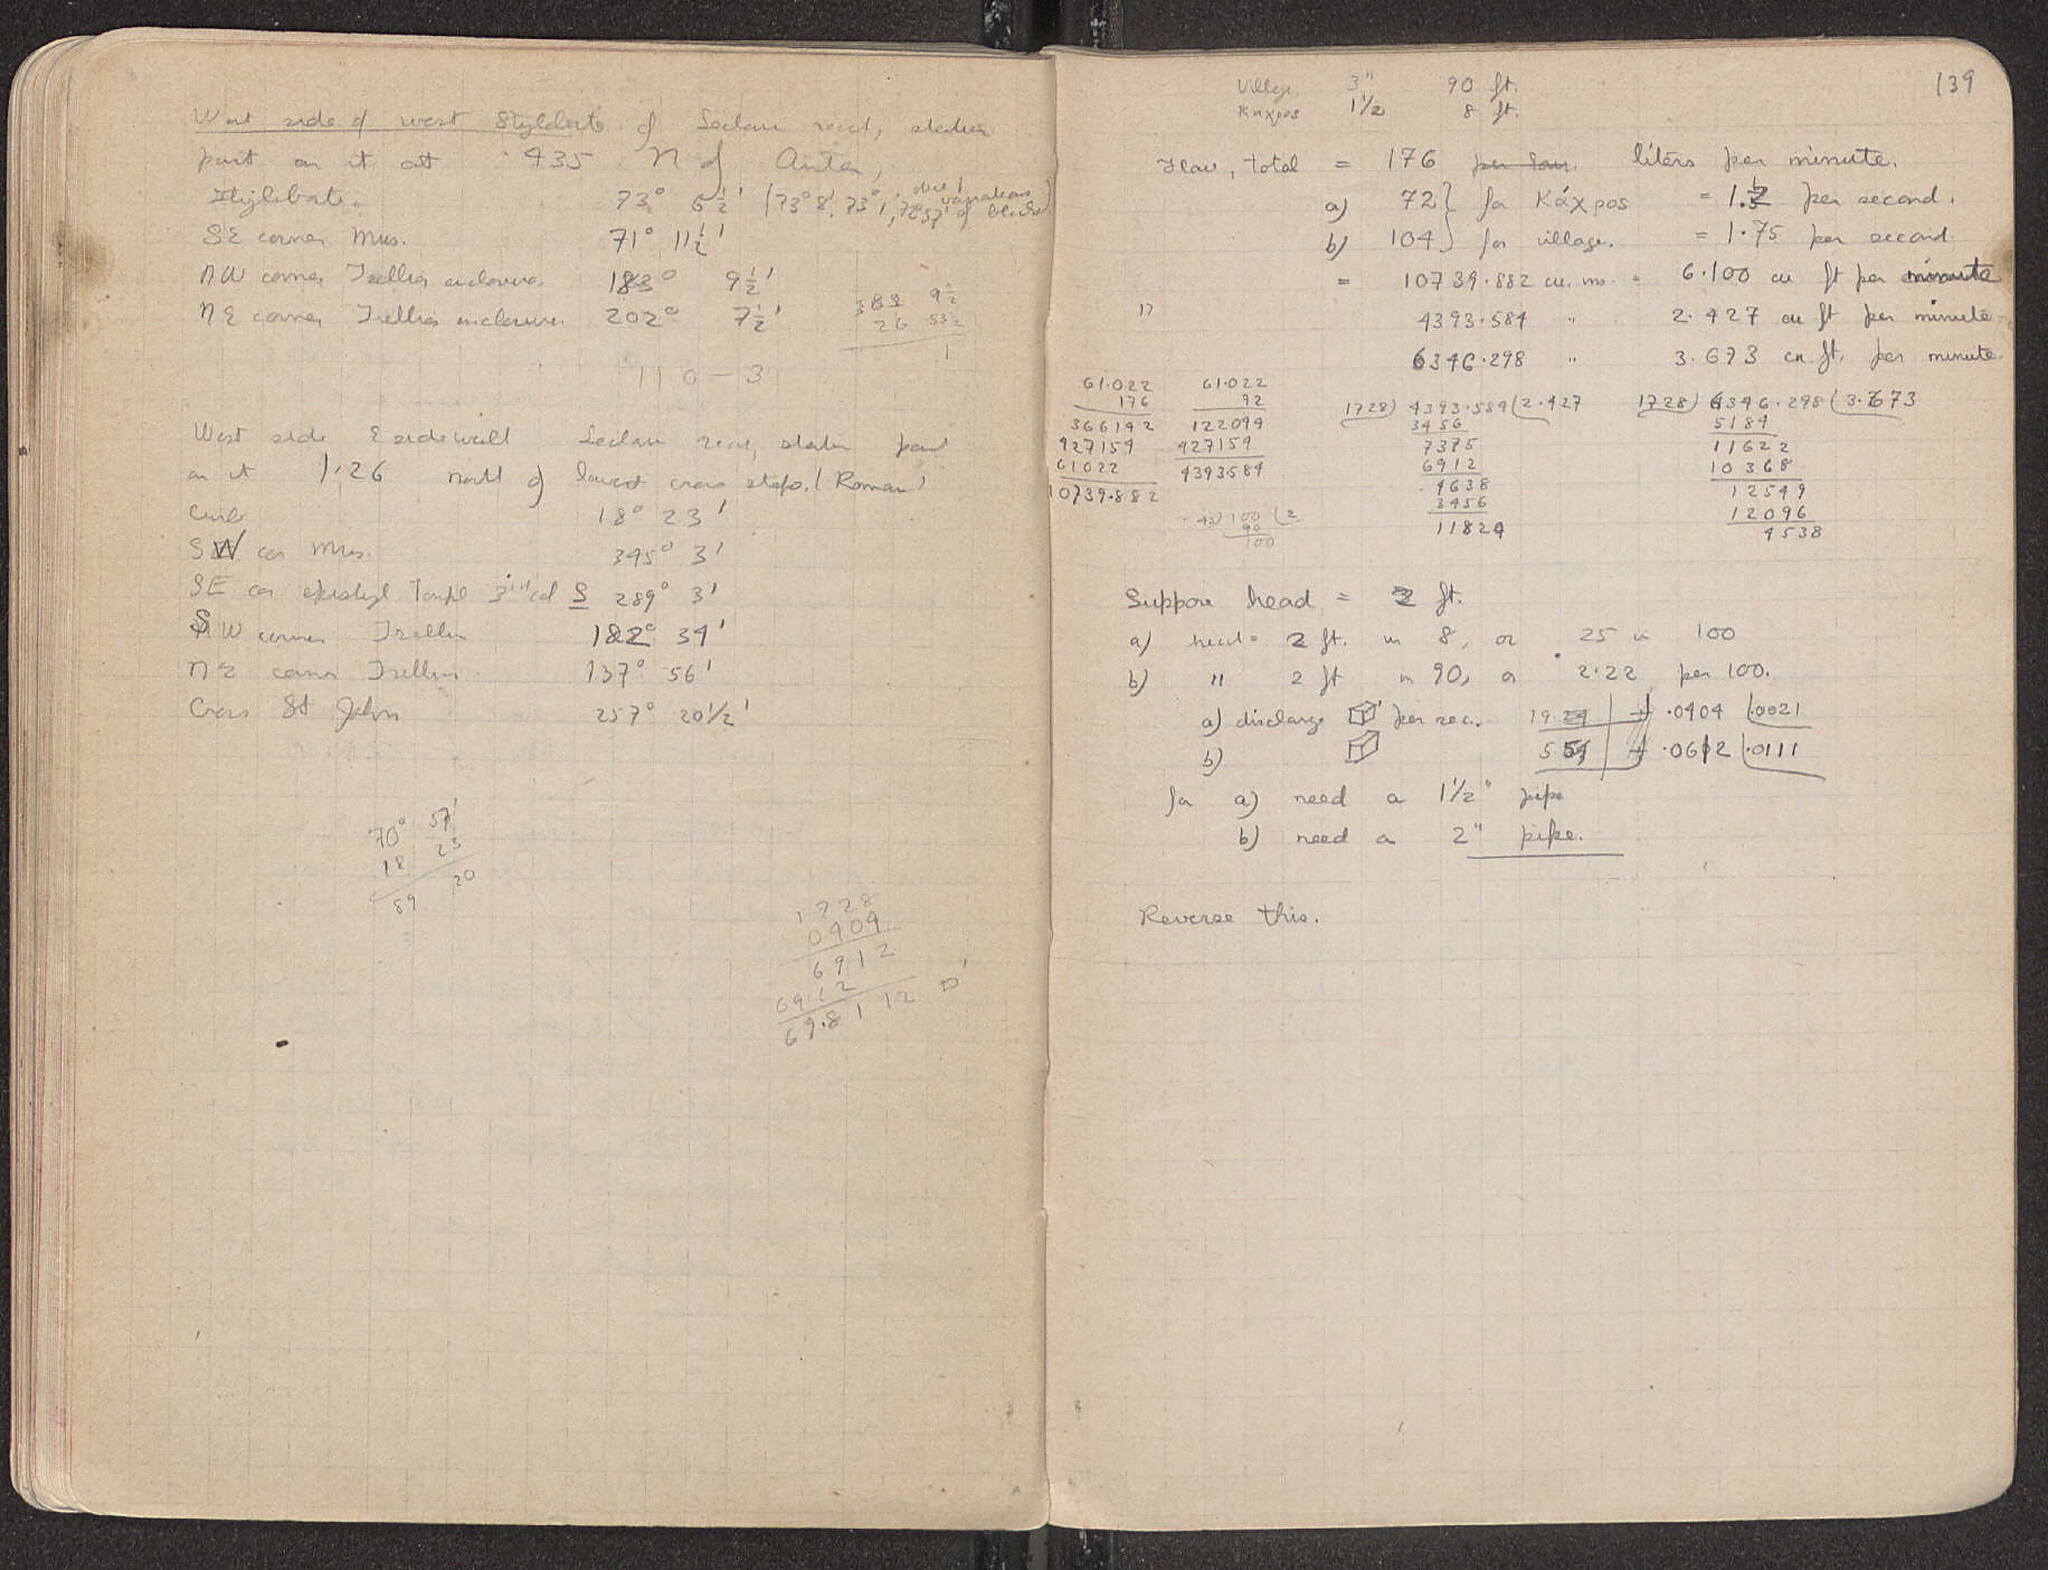 West side of west Stylobate of Lechaeum road, station
point on it at .435 N of Antae,
Stylobate. 73° 5½' (73° 8', 73° 1', 72° 57' due variations of blocks)
SE corner Mus. 71° 11½'
NW corner Trellis enclosure 183° 9½'
NE corner Trellis enclosure 202° 7½'
383 9½
26 53½
1
110-3
West side E sidewall Lechaeum road, station point
on it 1.26 north of lowest cross steps. (Roman)
Curb 18° 23'
SW cor Mus. 345° 3'
SE cor epistyl Temple 3rd col S 289° 3'
SW corner Trellis 182° 34'
NE corner Trellis 137° 56'
Cross St John 257° 20½'
70° 57'
18 23
89 20
1728
0404
6912
6912
69.8112
139
Village 3" 90 ft.
Κάχρος 1½ 8 ft.
Flow, total = 176 per hour. liters per minute.
a) 72 } for Κάχρος = 1.2 per second.
b) 104 } for village. = 1.75 per second
= 10739.882 cu. ins. = 6.100 cu ft per minute
17 4393.584 " 2.427 cu ft per minute
6346.298 " 3.673 cu ft. per minute.
61.022 61.022
176 92
366142 122044
427154 427154
61022 4393.584
10739.882
1728) 4393.584 (2.427
3456
7375
6912
4638
3456
11824
1728) 6346.298 (3.673
5184
11622
10368
12549
12096
4538
100 (2
90
100
Suppose head = 2 ft.
a) head = 2 ft. in 8, or 25 in 100
b) " 2 ft in 90, or 2.22 per 100.
a) discharge per sec. 19.24 + .0404 .0021
b) 5.54 + .0612 .0111
for a) need a 1½" pipe
b) need a 2" pipe.
Reverse this.